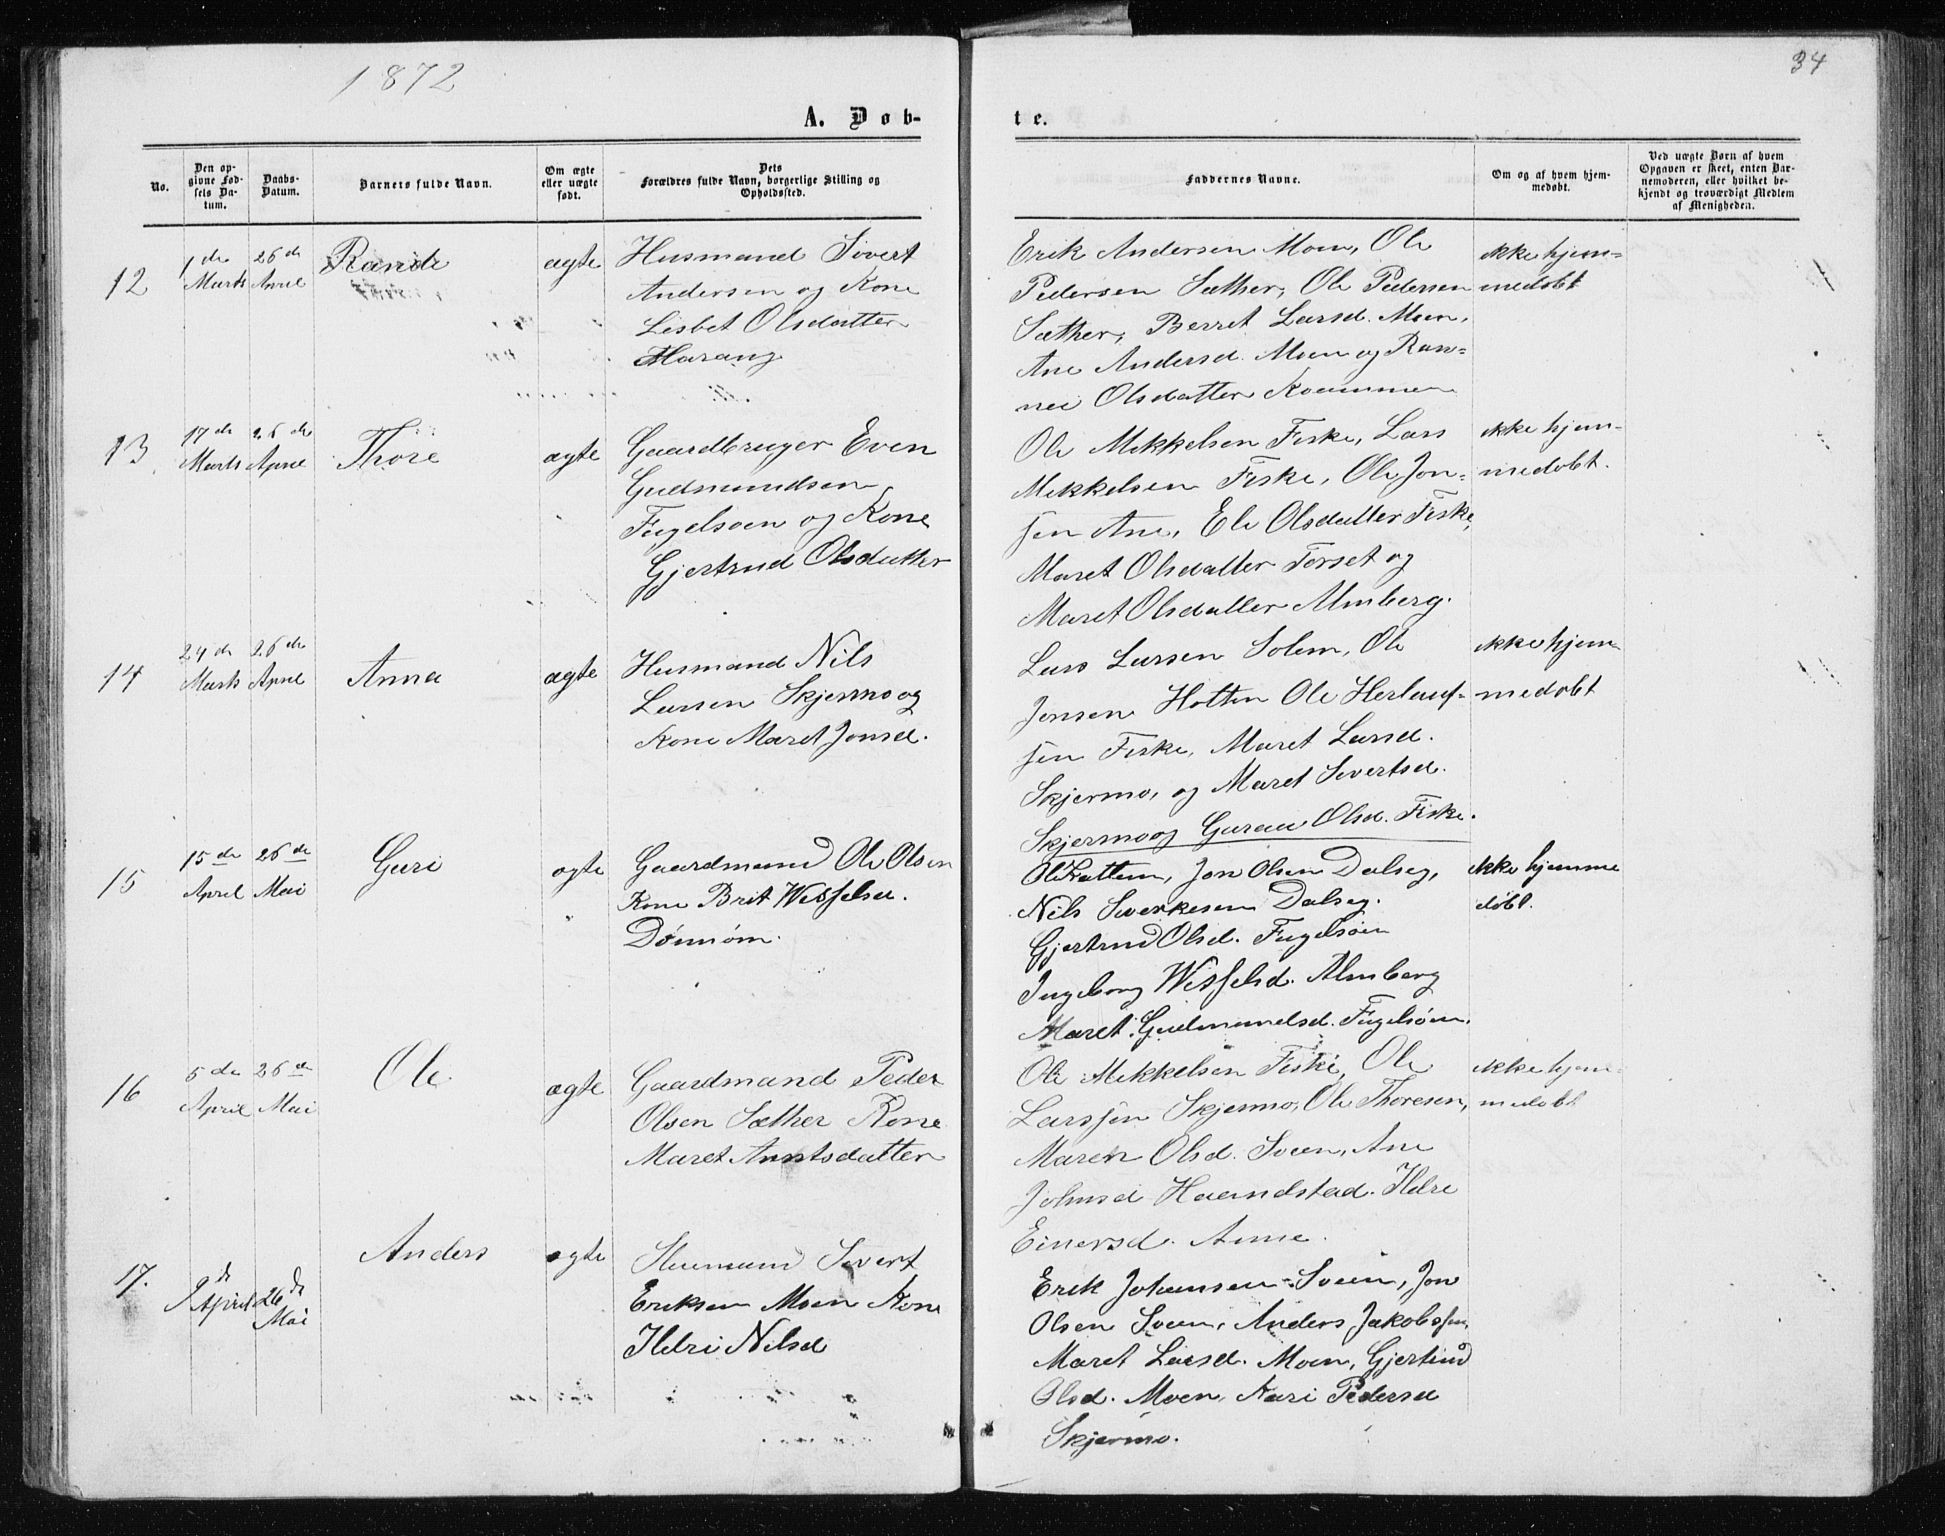 1872
34
A. Døb-
te.
No.
Den op-
givne Fød-
sels Da-
tum.
Daabs-
Datum.
Barnets fulde Navn.
Om ægte
eller uægte
født.
Dets
Forældres fulde Navn, borgerlige Stilling og
Opholdssted.
Faddernes Navne.
Om og af hvem hjem-
medøbt.
Ved uægte Børn af hvem
Opgaven er skeet, enten Bar-
nemoderen, eller hvilket be-
kjendt og troværdigt Medlem
af Menigheden.
12
1 de
Marts
26 de
April
Randi
ægte
Husmand Sivert
Andersen og Kone
Lisbet Olsdatter
Harang
Erik Andersen Moen, Ole
Pedersen Sæther, Ole Pedersen
Sæther, Berret Larsd. Moen,
Ane Andersd. Moen og Ran=
nei Olsdatter
ikke hjem=
medøbt
13
17 de
Marts
26 de
April
Thore
ægte
Gaardbruger Even
Gudmundsen
Fugelsøen og Kone
Gjertrud Olsdatter
Ole Mikkelsen Fiske, Lars
Mikkelsen Fiske, Ole Jon=
sen Ane, Eli Olsdatter Fiske,
Maret Olsdatter Forset og
Maret Olsdatter Almberg.
ikke hjem=
medøbt.
14
24 de
Marts
26 de
April
Anna
ægte
Husmand Nils
Larsen Skjermo og
Kone Maret Jonsd.
Lars Larsen Solem, Ole
Jonsen Holten Ole Herlauf=
sen Fiske, Maret Larsd.
Skjermo, og Maret Sivertsd.
Skjermo og Guran Olsd. Fiske.
ikke hjem=
medøbt
15
15 de
April
26 de
Mai
Guri
ægte
Gaardmand Ole Olsen
Kone Brit Wisselsd.
Ole Rattem, Jon Olsen Dalseg,
Nils Sverkesen Dalseg.
Gjertrud Olsd. Fugelsøen
Ingeborg Wisselsd. Almberg
Maret Gudmundsd. Fugelsøen.
ikke hjemme
døbt.
16
5 de
April
26 de
Mai
Ole
ægte
Gaardmand Peder
Olsen Sæther Kone
Maret Arntsdatter
Ole Mikkelsen Fiske, Ole
Larssen Skjermo, Ole Thoresen,
Maren Olsd. Svean, Ane
Johnsd Haamdstad. Ildri
Einersd. Anne.
ikke hjem=
medøbt
17.
9 d
April
26 de
Mai
Anders
ægte
Husmand Sivert
Eriksen Moen Kone
Ildri Nilsd
Erik Johansen Sveen, Jon
Olsen Sveen, Anders Jakobssen,
Maret Larsd. Moen, Gjertrud
Olsd. Moen, Kari Pedersd
Skjermo.